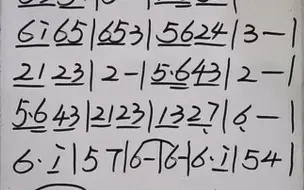 6i65|653|5624|3—|
2123|2-|5·643|2—|
5·643|2123|1327|6—|
6·i|57|6-|6-|6·i|54|